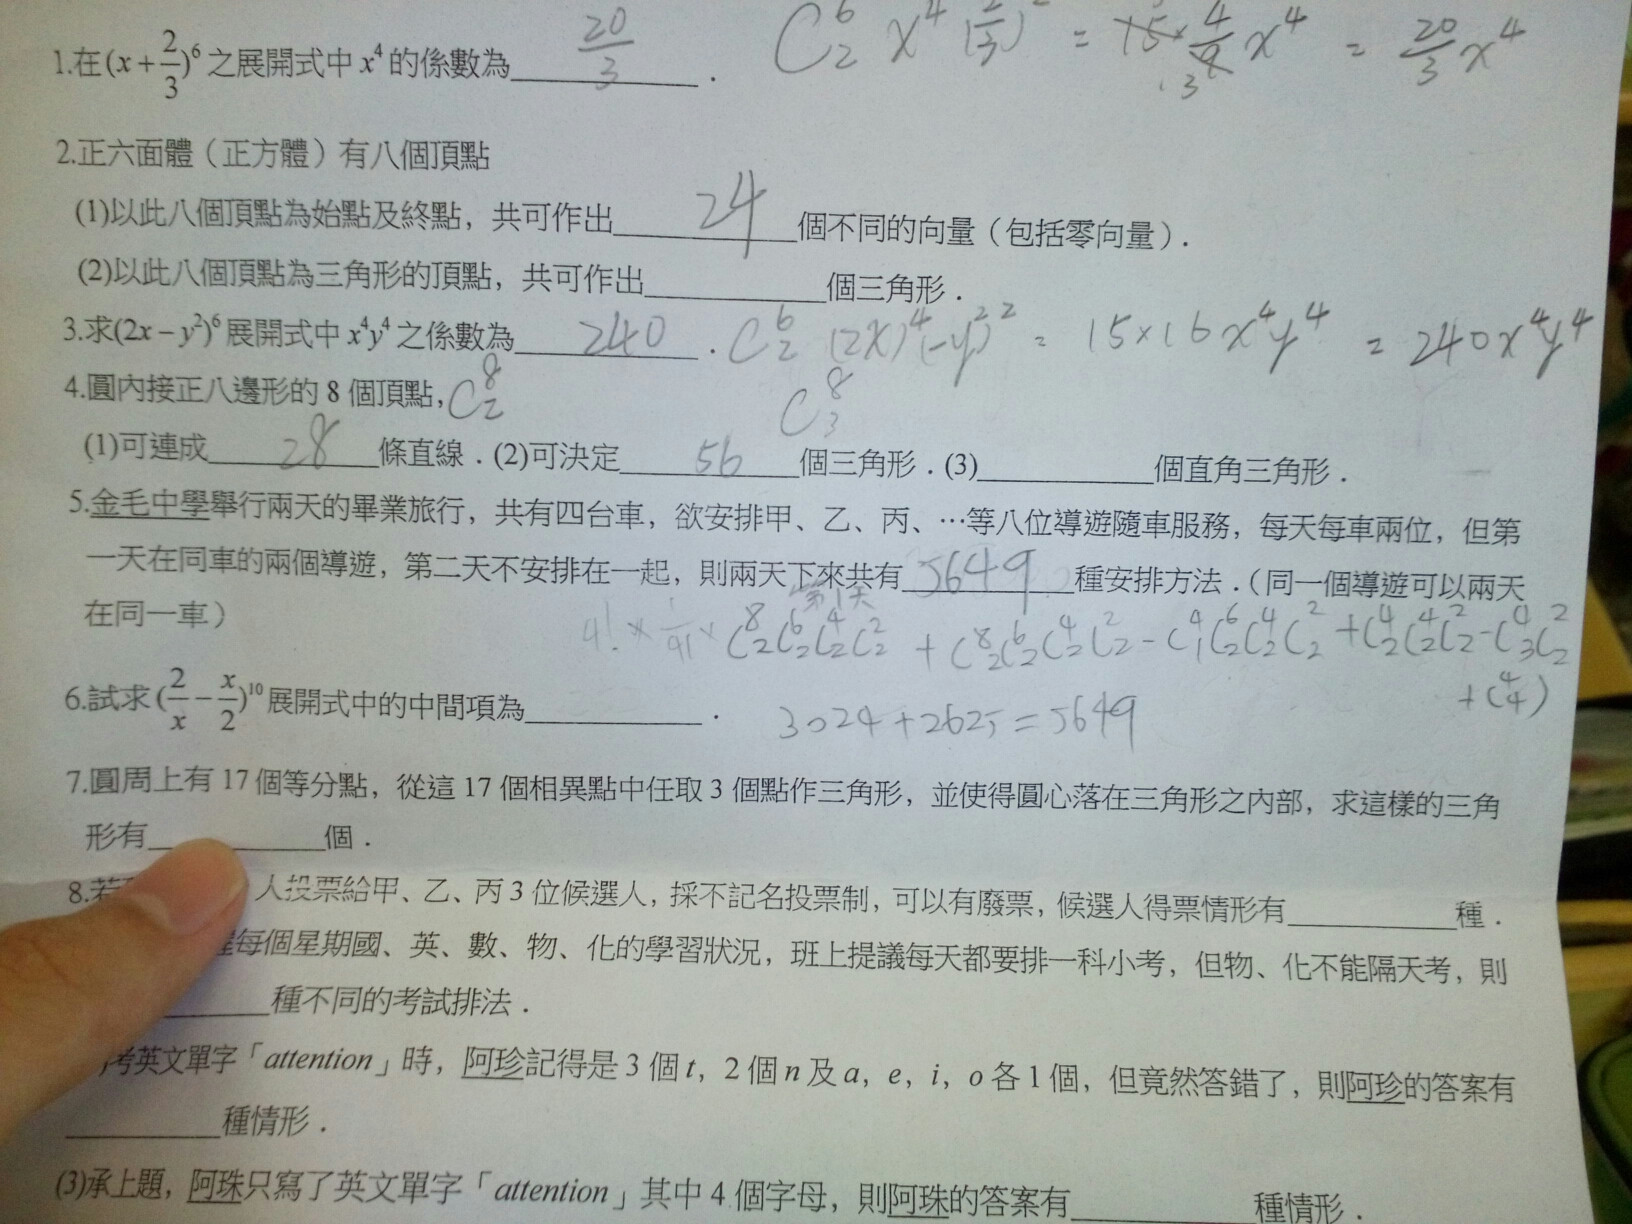 1.在(x+2/3)⁶之展開式中x⁴的係數為 20/3 . C⁶₂ x⁴ (2/3)² = 15×4/9 x⁴ = 20/3 x⁴
2.正六面體（正方體）有八個頂點
(1)以此八個頂點為始點及終點，共可作出 24 個不同的向量（包括零向量）.
(2)以此八個頂點為三角形的頂點，共可作出____個三角形.
3.求(2x−y²)⁶展開式中x⁴y⁴之係數為 240 . C⁶₂ (2x)⁴(-y²)² = 15×16x⁴y⁴ = 240x⁴y⁴
4.圓內接正八邊形的8個頂點, C⁸₂ C⁸₃
(1)可連成 28 條直線.(2)可決定 56 個三角形.(3)____個直角三角形.
5.金毛中學舉行兩天的畢業旅行，共有四台車，欲安排甲、乙、丙、…等八位導遊隨車服務，每天每車兩位，但第
一天在同車的兩個導遊，第二天不安排在一起，則兩天下來共有 5649 種安排方法.(同一個導遊可以兩天
在同一車)
4!× × C⁸₂C⁶₂C⁴₂C²₂ + (C⁸₂C⁶₂C⁴₂C²₂ - C⁴₁C⁶₂C⁴₂C²₂ + C⁴₂C⁴₂C²₂ - C⁴₃C²₂
+C⁴₄)
6.試求(2/x − x/2)¹⁰展開式中的中間項為____. 3024+2625=5649
7.圓周上有17個等分點，從這17個相異點中任取3個點作三角形，並使得圓心落在三角形之內部，求這樣的三角
形有____個.
8.若 人投票給甲、乙、丙3位候選人，採不記名投票制，可以有廢票，候選人得票情形有____種.
每個星期國、英、數、物、化的學習狀況，班上提議每天都要排一科小考，但物、化不能隔天考，則
____種不同的考試排法.
考英文單字「attention」時，阿珍記得是3個t，2個n及a，e，i，o各1個，但竟然答錯了，則阿珍的答案有
____種情形.
(3)承上題，阿珠只寫了英文單字「attention」其中4個字母，則阿珠的答案有____種情形.